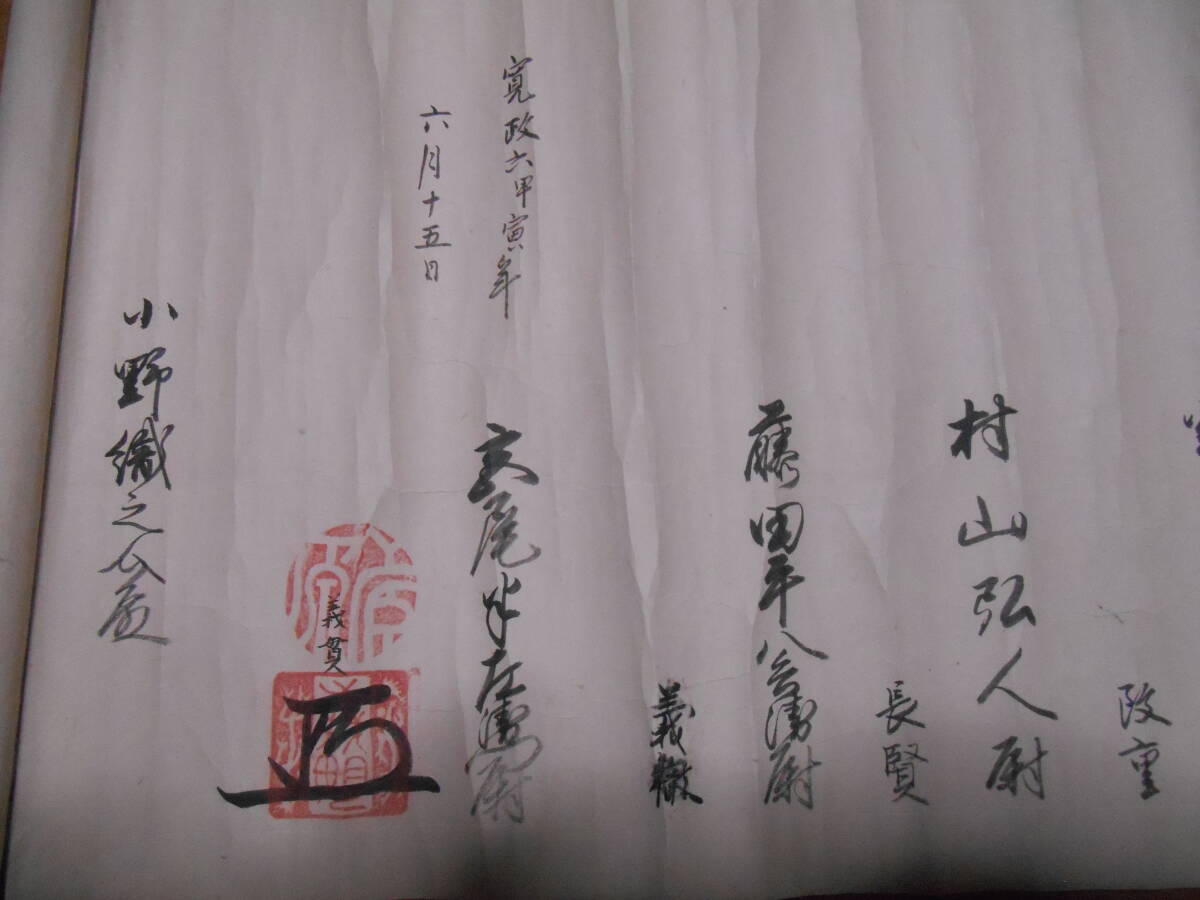 政重
村山弘人尉
長賢
藤田平八兵衛尉
義徹
玄尾半左衛門尉
義貫
寛政六甲寅年
六月十五日
小野織之介殿